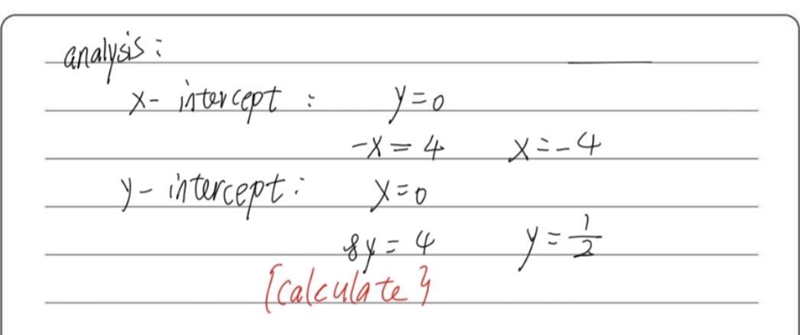 analysis:
x- intercept : y=0
-x = 4 x=-4
y- intercept: x=0
8y = 4 y = 1/2
[calculate}